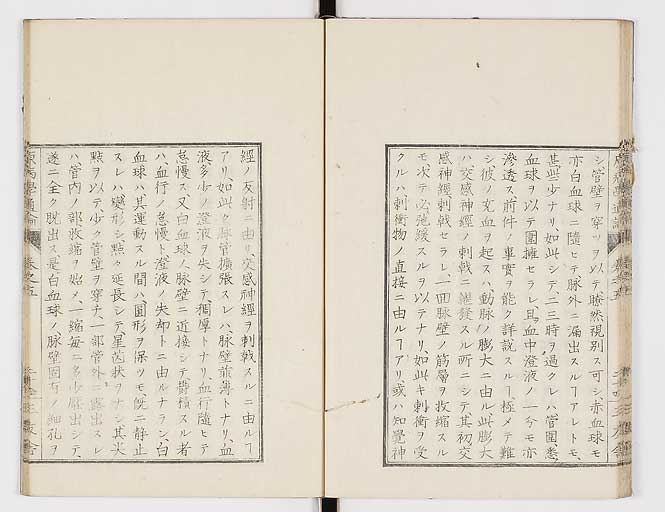 シ管壁ヲ穿ツヲ以テ瞭然視別ス可シ赤血球モ
亦白血球ニ隨ヒテ脉外ニ漏出スルヿアレトモ、
甚些少ナリ、如此シテ、二三時ヲ過クレハ管圍悉ク
血球ヲ以テ圍擁セラレ、且血中澄液ノ一分モ亦
滲透ス前件ノ事實ヲ能ク詳説スルヿ極メテ難
シ彼ノ充血ヲ起スハ、動脉ノ膨大ニ由ル此膨大
ハ交感神經ノ刺戟ニ繼發スル所ニシテ其初交
感神經刺戟セラレ一回脉壁ノ筋層ヲ收縮スル
モ、次テ必弛緩スルヲ以テナリ、如此キ刺衝ヲ受
クルハ刺衝物ノ直接ニ由ルヿアリ或ハ知覺神
經ノ反射ニ由リ交感神經ヲ刺戟スルニ由ルヿ
アリ、如此ク脉管擴張スレハ、脉壁菲薄トナリ、血
液多少ノ澄液ヲ失シテ稠厚トナリ、血行隨ヒテ
怠慢ス、又白血球ノ脉壁ニ近接シテ
ハ、血行ノ怠慢ト澄液ノ失却トニ由ルナラン、白
血球ハ、其運動スル間ハ圓形ヲ保ツモ既ニ靜止
スレハ變形シ點々延長シテ星芒狀ヲナシ其尖
點ヲ以テ少ク管壁ヲ穿チ、一部管外ニ露出スレ
ハ管内ノ部收縮ヲ始メ、一縮毎ニ多少脱出シテ、
遂ニ全ク脱出ス、是白血球ノ脉壁固有ノ細孔ヲ
原病學通論
卷之五